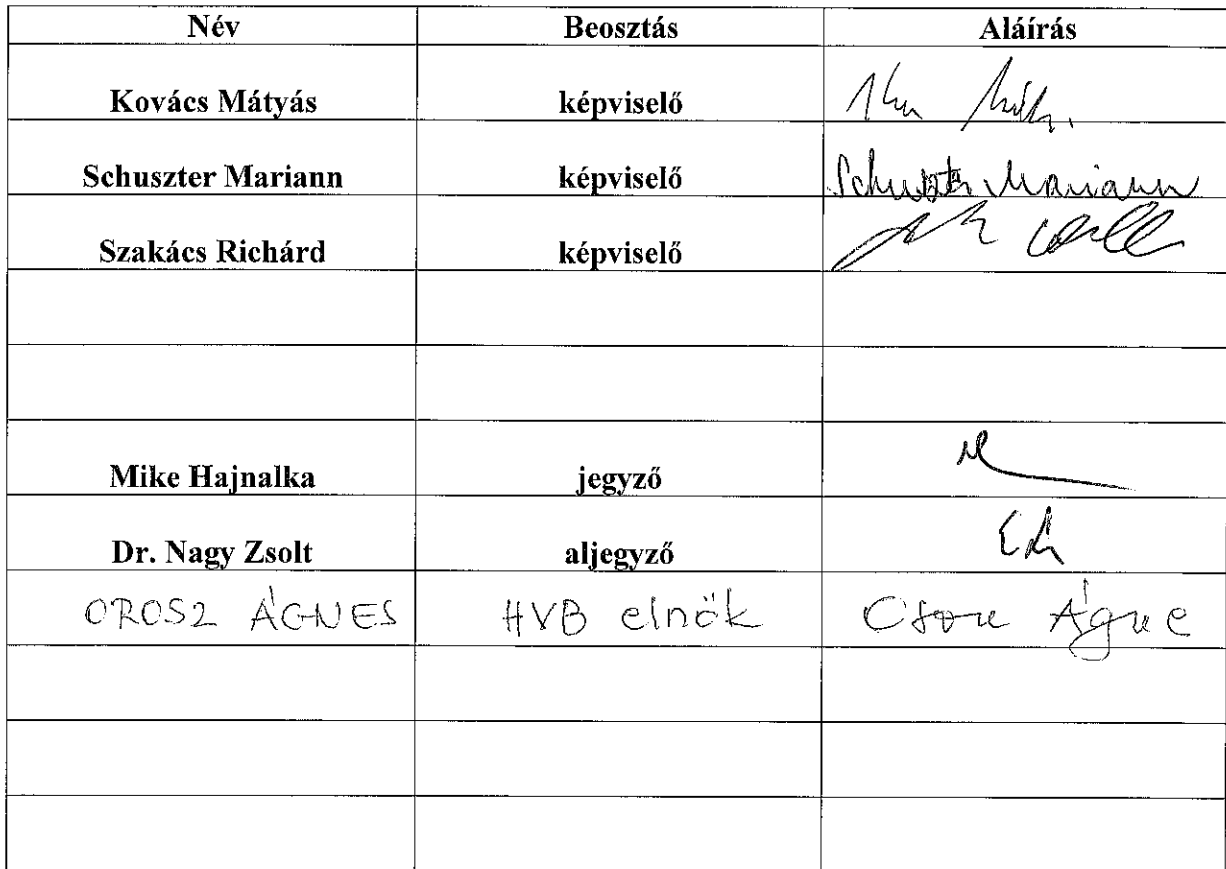 Név Beosztás Aláírás
Kovács Mátyás képviselő
Schuszter Mariann képviselő Schuszter Mariann
Szakács Richárd képviselő
Mike Hajnalka jegyző
Dr. Nagy Zsolt aljegyző
OROSZ ÁGNES HVB elnök